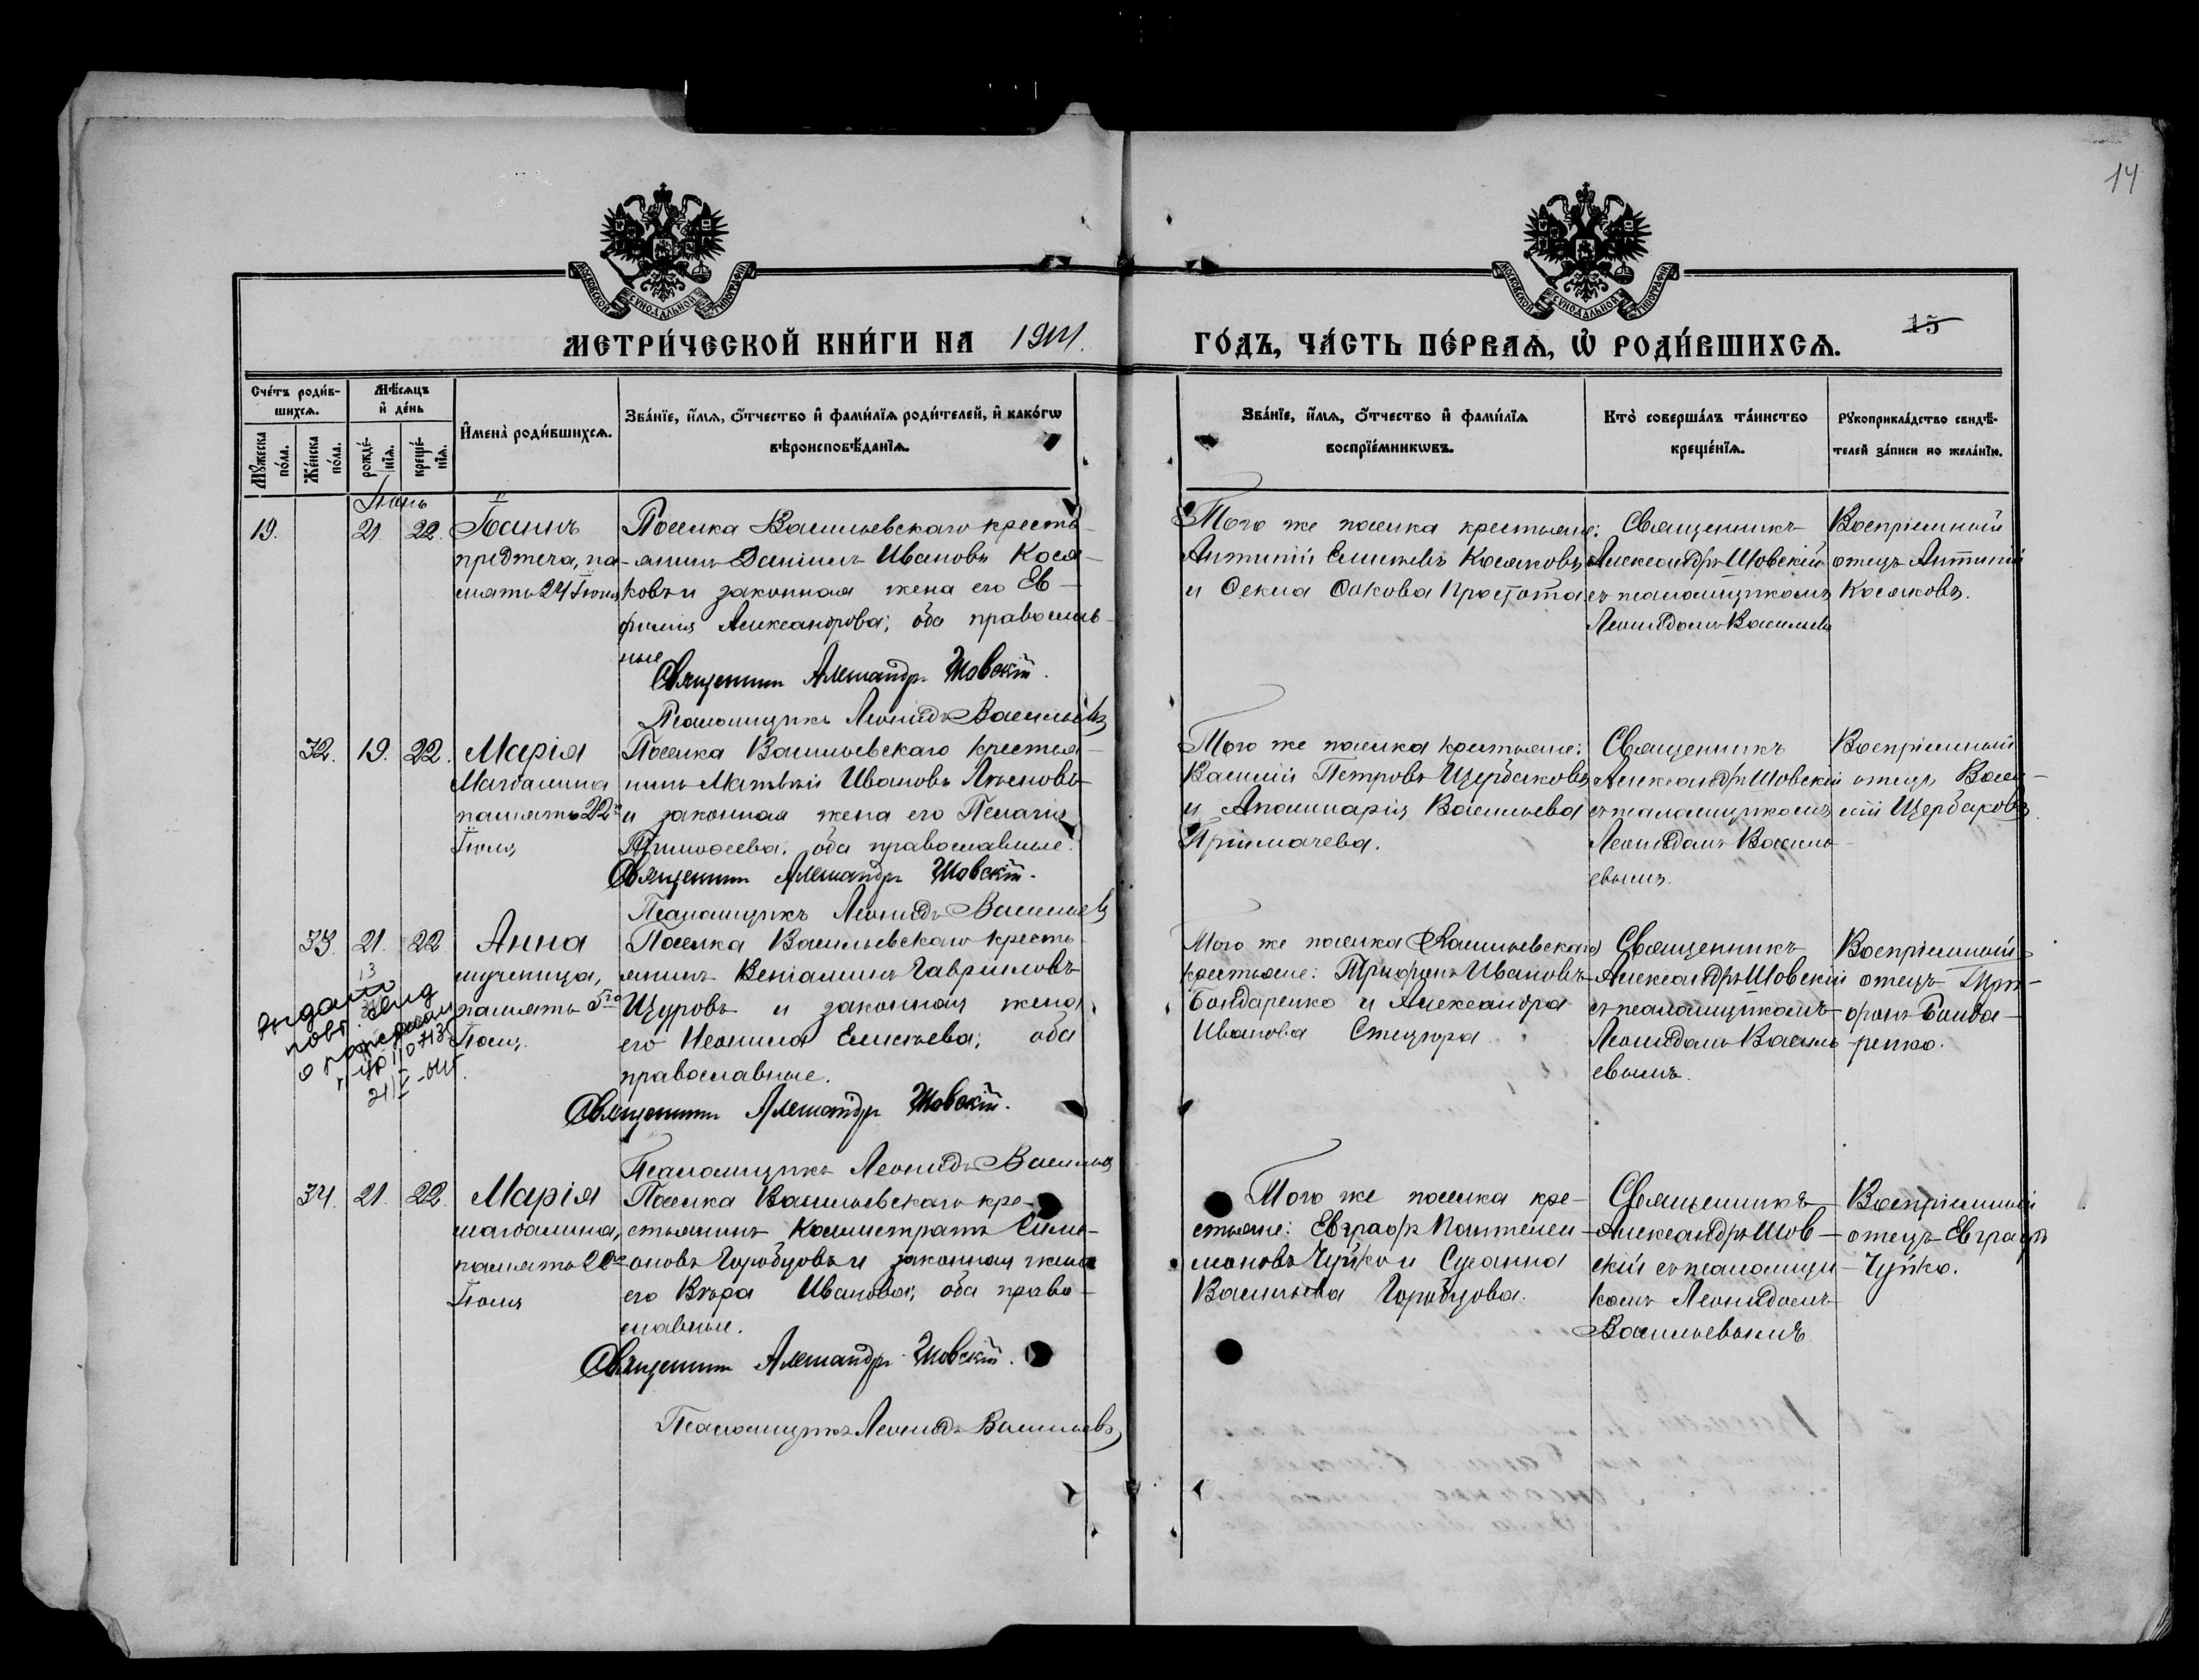 14
МОСКОВСКОЙ СѴНОДАЛЬНОЙ ТИПОГРАФІИ
МОСКОВСКОЙ СѴНОДАЛЬНОЙ ТИПОГРАФІИ
МЕТРИ́ЧЕСКОЙ КНИ́ГИ НА 1914.
ГО́ДЪ, ЧА́СТЬ ПЕ́РВАѦ, Ѡ҆ РОДИ́ВШИХСѦ.
15
Сче́тъ роди́в-
шихсѧ.
Мꙋ́жеска
по́ла.
Же́нска
по́ла.
Мѣ́сѧцъ
и҆ де́нь
рожде́-
нїѧ.
креще́-
нїѧ.
И҆мена̀ роди́вшихсѧ.
Зва́нїе, и҆́мѧ, ѻ҆́тчество и҆ фами́лїѧ роди́телей, и҆ како́гѡ
вѣроисповѣ́данїѧ.
Зва́нїе, и҆́мѧ, ѻ҆́тчество и҆ фами́лїѧ
воспрїе́мникѡвъ.
Кто̀ соверша́лъ та́инство
креще́нїѧ.
Рꙋкоприкла́дство свидѣ́-
телей за́писи по жела́нїю.
Іюнь
19.
21.
22.
Іоаннъ
предтеча, па-
мять 24 Іюня
Поселка Васильевскаго кресть-
янинъ Даніилъ Ивановъ Кося-
ковъ и законная жена его Ев-
фимія Александрова; оба православ-
ные
Священникъ Александръ Шовскій.
Псаломщикъ Леонидъ Васильевъ
Того же поселка крестьяне:
Антипій Елисеевъ Косяковъ
и Ѳекла Ѳокова Простота
Священникъ
Александръ Шовскій
съ псаломщикомъ
Леонидомъ Василье
Воспріемный
отецъ Антипій
Косяковъ.
32.
19.
22.
Марія
Магдалина
память 22
Іюля
Поселка Васильевскаго крестья-
нинъ Матвѣй Ивановъ
и законная жена его Пелагія
Тимоѳеева; оба православные.
Священникъ Александръ Шовскій.
Псаломщикъ Леонидъ Васильевъ
Того же поселка крестьяне:
Василій Петровъ Щербаковъ
и Аполинарія Васильева
Примачева.
Священникъ
Александръ Шовскій
съ псаломщикомъ
Леонидомъ Василь-
евымъ.
Воспріемный
отецъ Васи-
лій Щербаковъ.
33.
21.
22
Анна
мученица,
память 5го
Іюля.
Поселка Васильевскаго кресть-
янинъ Веніаминъ Гавриловъ
Щуровъ и законная жена
его Неонила Елисеева; оба
православные.
Священникъ Александръ Шовскій.
Псаломщикъ Леонидъ Васильевъ
выдано
повт. свид
о рождении
21/V-
Того же поселка Васильевскаго
крестьяне: Трифонъ Ивановъ
Бондаренко и Александра
Иванова Стецюра
Священникъ
Александръ Шовскій
съ псаломщикомъ
Леонидомъ Василь-
евымъ.
Воспріемный
отецъ Три-
фонъ Бонда-
ренко.
34.
21.
22.
Марія
магдалина,
память 22
Іюля
Поселка Васильевскаго кре-
стьянинъ Каллистратъ Симе-
оновъ Горобцовъ и законная жена
его Вѣра Иванова; оба право-
славные.
Священникъ Александръ Шовскій.
Псаломщикъ Леонидъ Васильевъ
Того же поселка кре-
стьяне: Евграфъ Пантелеи-
моновъ Чуйко и Сусанна
Васильева Горобцова.
Священникъ
Александръ Шов-
скій съ псаломщи-
комъ Леонидомъ
Васильевымъ
Воспріемный
отецъ Евграфъ
Чуйко.